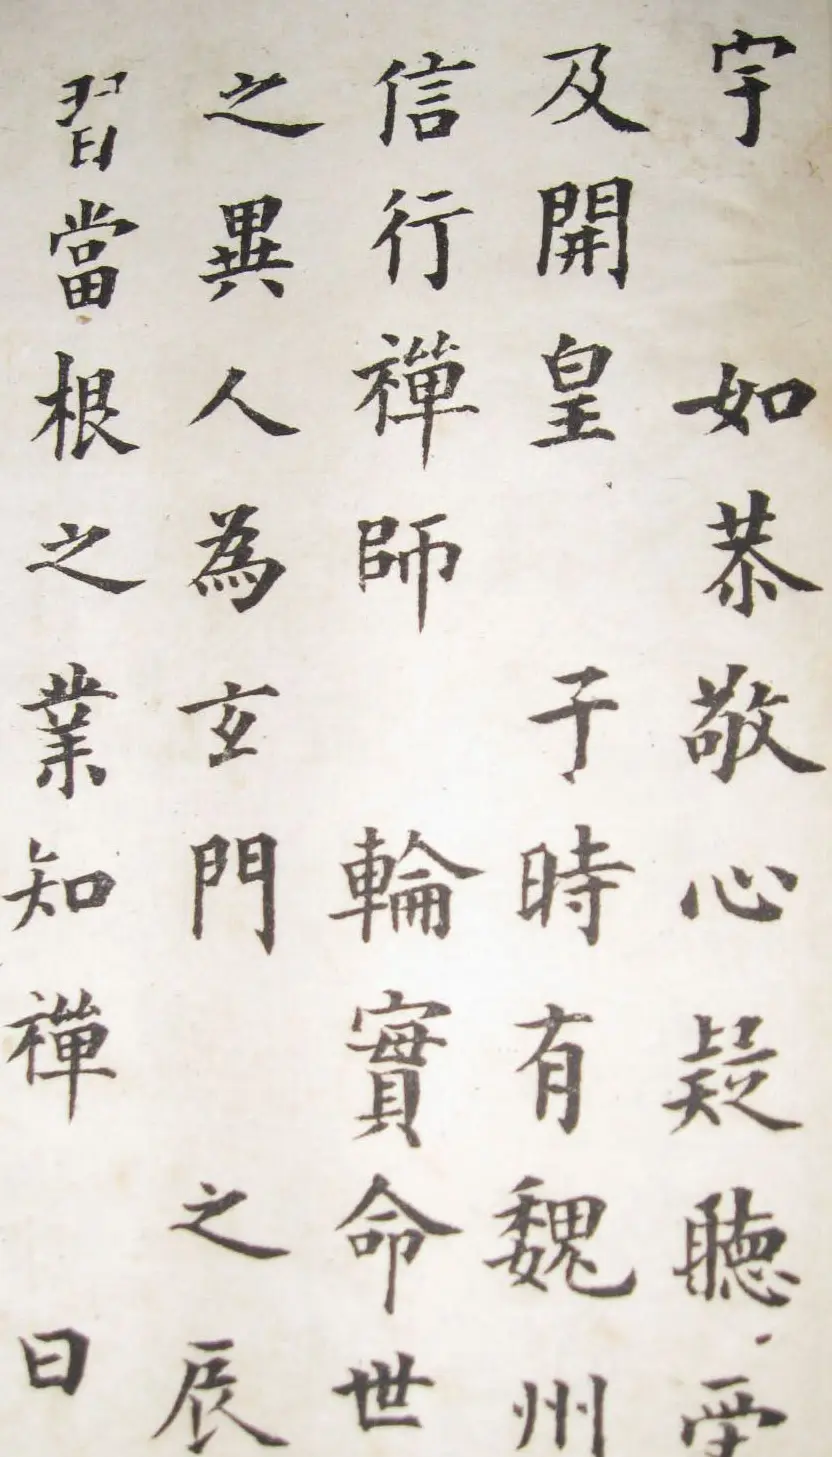 宇 如恭敬心疑聽受
及開皇 子時有魏州
信行禪師 輪實命世
之異人為玄門 之辰
習當根之業知禪 日